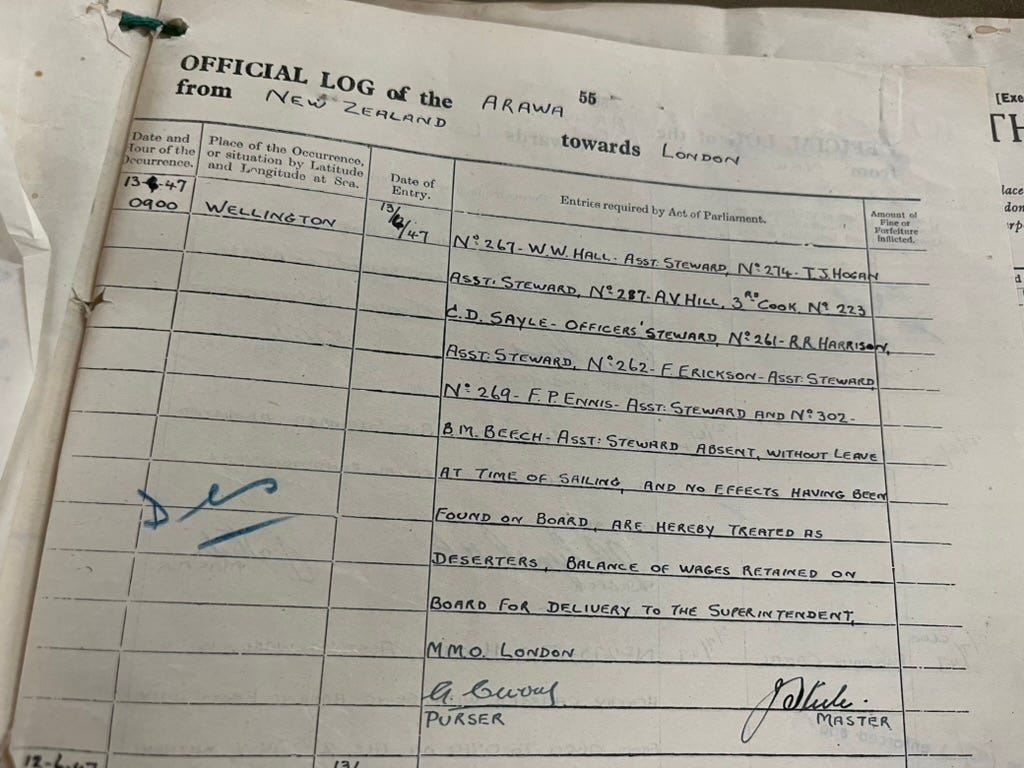 OFFICIAL LOG of the ARAWA 55
from NEW ZEALAND towards LONDON
[Exe
TH
Date and Hour of the Occurrence.
Place of the Occurrence, or situation by Latitude and Longitude at Sea.
Date of Entry.
Entries required by Act of Parliament.
Amount of Fine or Forfeiture inflicted.
13-6-47
0900 WELLINGTON 13/6/47
Nº 267- W.W. HALL- ASST: STEWARD, Nº 274- T.J. HOGAN
ASST: STEWARD, Nº 287- A.V HILL, 3RD COOK, Nº 223
C.D. SAYLE- OFFICERS' STEWARD, Nº 261- R.R HARRISON,
ASST: STEWARD, Nº 262- F. ERICKSON- ASST: STEWARD
Nº 269- F.P. ENNIS- ASST: STEWARD AND Nº 302-
B.M. BEECH- ASST: STEWARD ABSENT, WITHOUT LEAVE
AT TIME OF SAILING, AND NO EFFECTS HAVING BEEN
FOUND ON BOARD, ARE HEREBY TREATED AS
DESERTERS, BALANCE OF WAGES RETAINED ON
BOARD FOR DELIVERY TO THE SUPERINTENDENT,
M.M.O. LONDON
PURSER MASTER
Des
12-6-47 13/